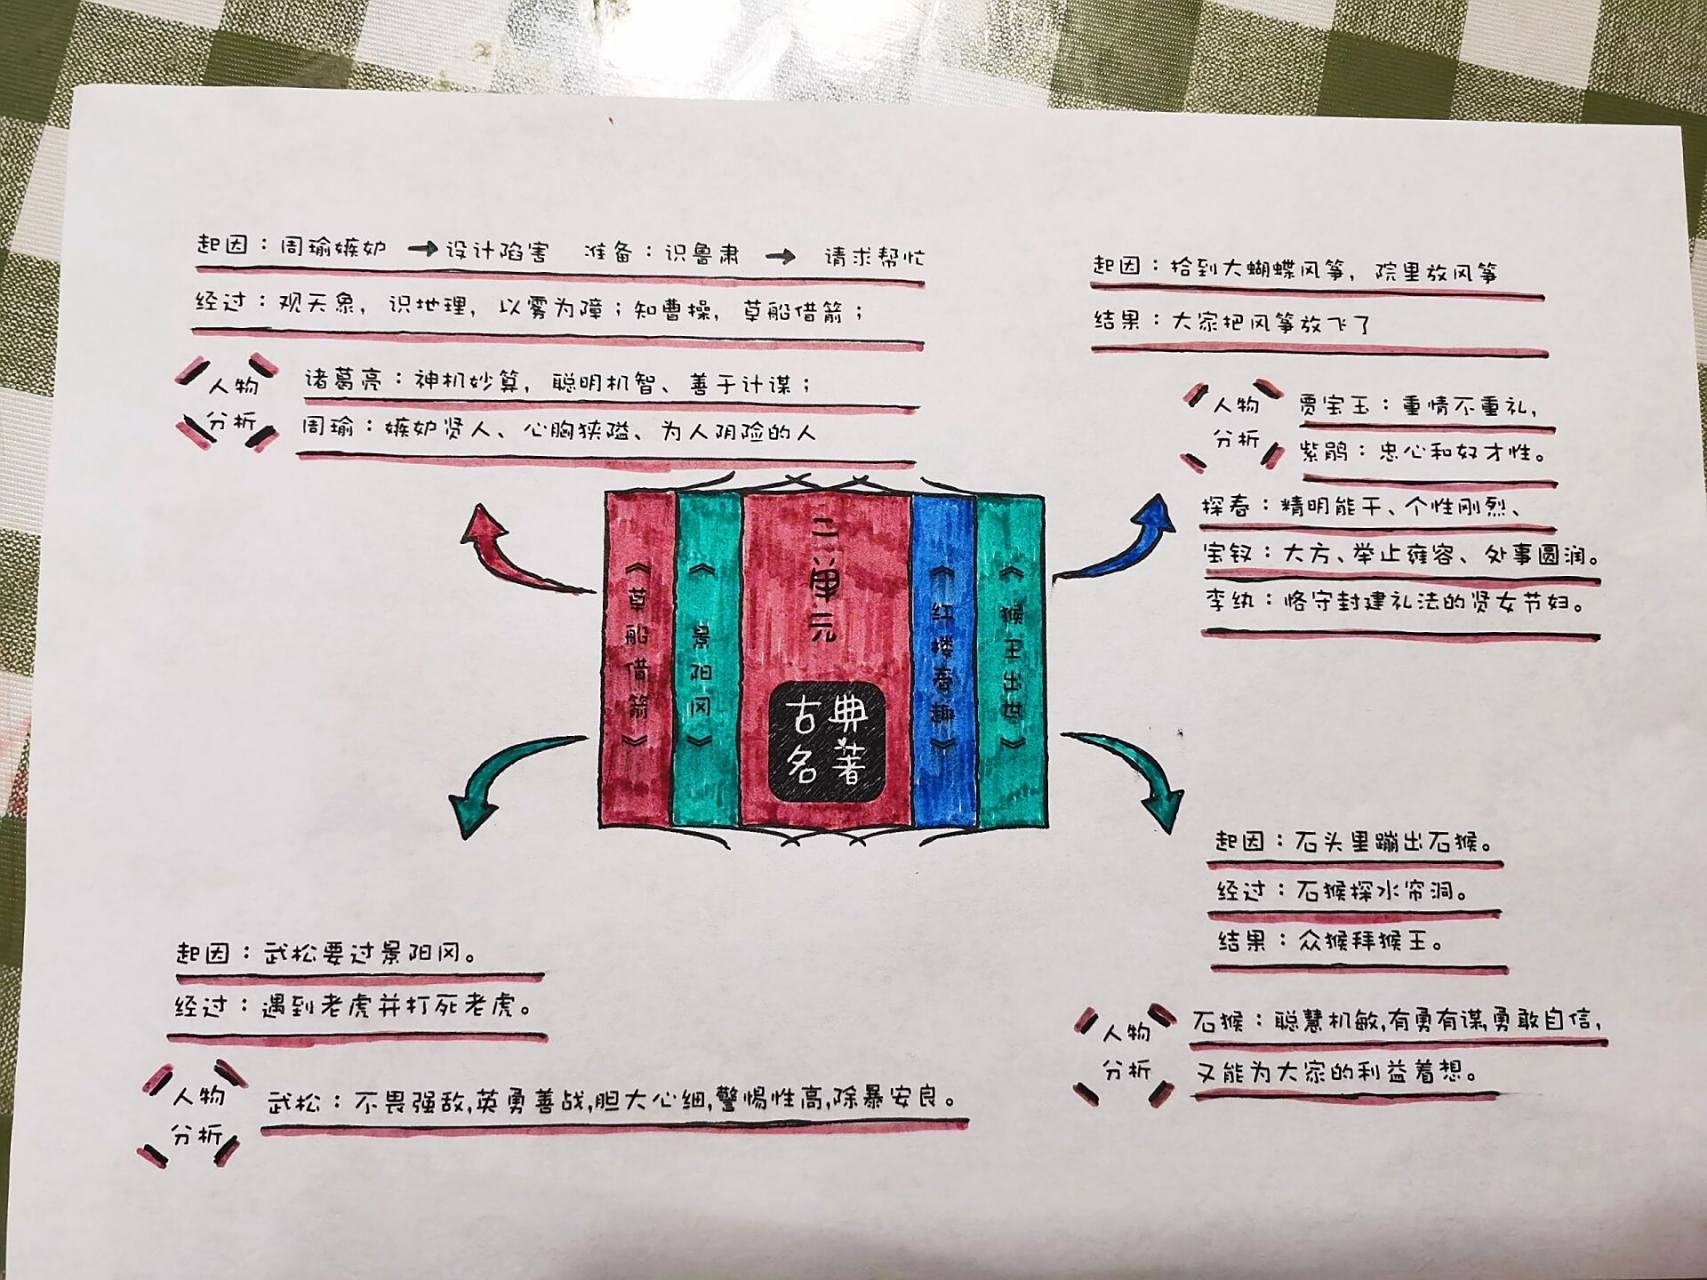 起因：周瑜嫉妒 → 设计陷害 准备：识鲁肃 → 请求帮忙
经过：观天象，识地理，以雾为障；知曹操，草船借箭；
人物
分析
诸葛亮：神机妙算，聪明机智、善于计谋；
周瑜：嫉妒贤人、心胸狭隘、为人阴险的人
起因：拾到大蝴蝶风筝，院里放风筝
结果：大家把风筝放飞了
人物
分析
贾宝玉：重情不重礼，
紫鹃：忠心和好才性。
探春：精明能干、个性刚烈、
宝钗：大方、举止雍容、处事圆润。
李纨：恪守封建礼法的贤女节妇。
《草船借箭》
《景阳冈》
二单元
古典
名著
《红楼春趣》
《猴王出世》
起因：武松要过景阳冈。
经过：遇到老虎并打死老虎。
人物
分析
武松：不畏强敌,英勇善战,胆大心细,警惕性高,除暴安良。
起因：石头里蹦出石猴。
经过：石猴探水帘洞。
结果：众猴拜猴王。
人物
分析
石猴：聪慧机敏,有勇有谋,勇敢自信,
又能为大家的利益着想。